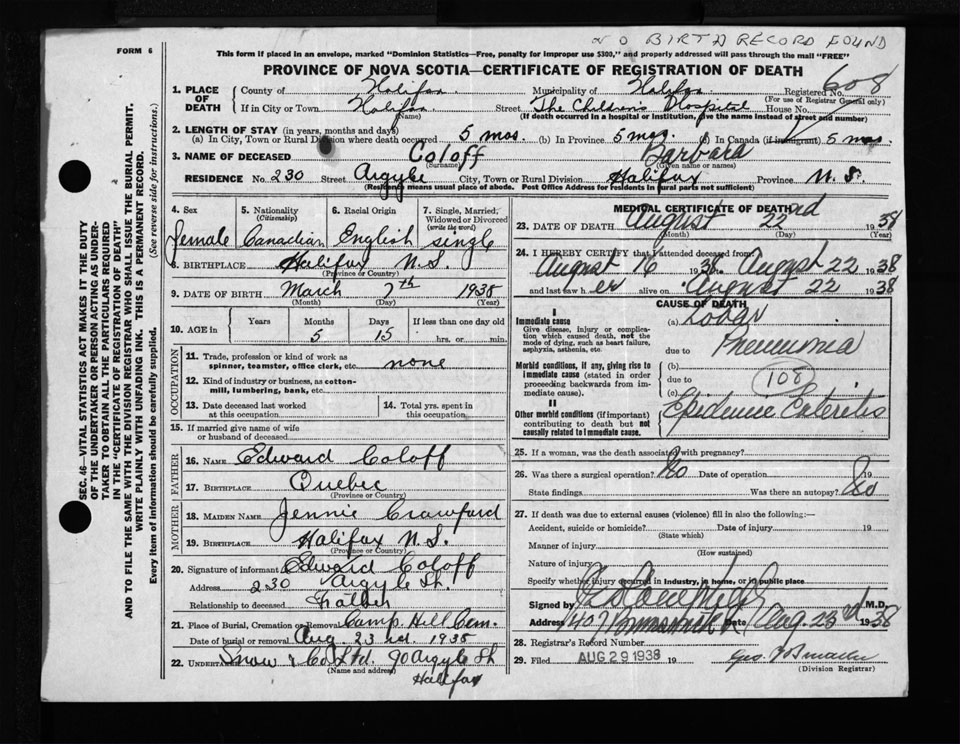 NO BIRTH RECORD FOUND
FORM 6
This form if placed in an envelope, marked "Dominion Statistics—Free, penalty for improper use $300," and properly addressed will pass through the mail "FREE"
PROVINCE OF NOVA SCOTIA—CERTIFICATE OF REGISTRATION OF DEATH
608
1. PLACE OF DEATH
County of Halifax Municipality of Halifax Registered No.
(For use of Registrar General only)
If in City or Town Halifax Street The Children's Hospital House No.
(Name) (If death occurred in a hospital or institution, give the name instead of street and number)
2. LENGTH OF STAY (in years, months and days)
(a) In City, Town or Rural Division where death occurred 5 mos. (b) In Province 5 mos. (c) In Canada (if immigrant) 5 mos
3. NAME OF DECEASED Coloff Barbara
(Surname) (Given name or names)
RESIDENCE No. 230 Street Argyle City, Town or Rural Division Halifax Province N.S.
(Residence means usual place of abode. Post Office Address for residents in rural parts not sufficient)
4. Sex 5. Nationality (Citizenship) 6. Racial Origin 7. Single, Married, Widowed or Divorced (write the word)
female Canadian English single
8. BIRTHPLACE Halifax N.S.
(Province or Country)
9. DATE OF BIRTH March 7th 1938
(Month) (Day) (Year)
10. AGE in Years Months Days If less than one day old
5 15 hrs. or min.
OCCUPATION
11. Trade, profession or kind of work as spinner, teamster, office clerk, etc. none
12. Kind of industry or business, as cotton-mill, lumbering, bank, etc.
13. Date deceased last worked at this occupation
14. Total yrs. spent in this occupation
15. If married give name of wife or husband of deceased
FATHER
16. NAME Edward Coloff
17. BIRTHPLACE Quebec
(Province or Country)
MOTHER
18. MAIDEN NAME Jennie Crawford
19. BIRTHPLACE Halifax N.S.
(Province or Country)
20. Signature of informant Edward Coloff
Address 230 Argyle St.
Relationship to deceased Father
21. Place of Burial, Cremation or Removal Camp Hill Cem.
Date of burial or removal Aug. 23rd. 1938
22. UNDERTAKER Snow & Co Ltd. 90 Argyle St
(Name and address)
Halifax
MEDICAL CERTIFICATE OF DEATH
23. DATE OF DEATH August 22nd 1938
(Month) (Day) (Year)
24. I HEREBY CERTIFY that I attended deceased from:
August 16 1938 to August 22 1938
and last saw her alive on August 22 1938
CAUSE OF DEATH
I
Immediate cause
Give disease, injury or complication which caused death, not the mode of dying, such as heart failure, asphyxia, asthenia, etc.
(a) Lobar
due to Pneumonia
Morbid conditions, if any, giving rise to immediate cause (stated in order proceeding backwards from immediate cause).
(b)
due to 108
(c)
II
Other morbid conditions (if important) contributing to death but not causally related to immediate cause.
Epidemic Enteritis
25. If a woman, was the death associated with pregnancy?
26. Was there a surgical operation? No Date of operation 19
State findings Was there an autopsy? No
27. If death was due to external causes (violence) fill in also the following:—
Accident, suicide or homicide? Date of injury 19
(State which)
Manner of injury
(How sustained)
Nature of injury
Specify whether injury occurred in industry, in home, or in public place
Signed by M.D.
Address 407 Brunswick St Date Aug. 23rd 1938
28. Registrar's Record Number
29. Filed AUG 29 1938 19
(Division Registrar)
SEC. 46—VITAL STATISTICS ACT MAKES IT THE DUTY
OF THE UNDERTAKER OR PERSON ACTING AS UNDER-
TAKER TO OBTAIN ALL THE PARTICULARS REQUIRED
IN THE "CERTIFICATE OF REGISTRATION OF DEATH"
AND TO FILE THE SAME WITH THE DIVISION REGISTRAR WHO SHALL ISSUE THE BURIAL PERMIT.
WRITE PLAINLY WITH UNFADING INK. THIS IS A PERMANENT RECORD.
Every item of information should be carefully supplied. (See reverse side for instructions.)